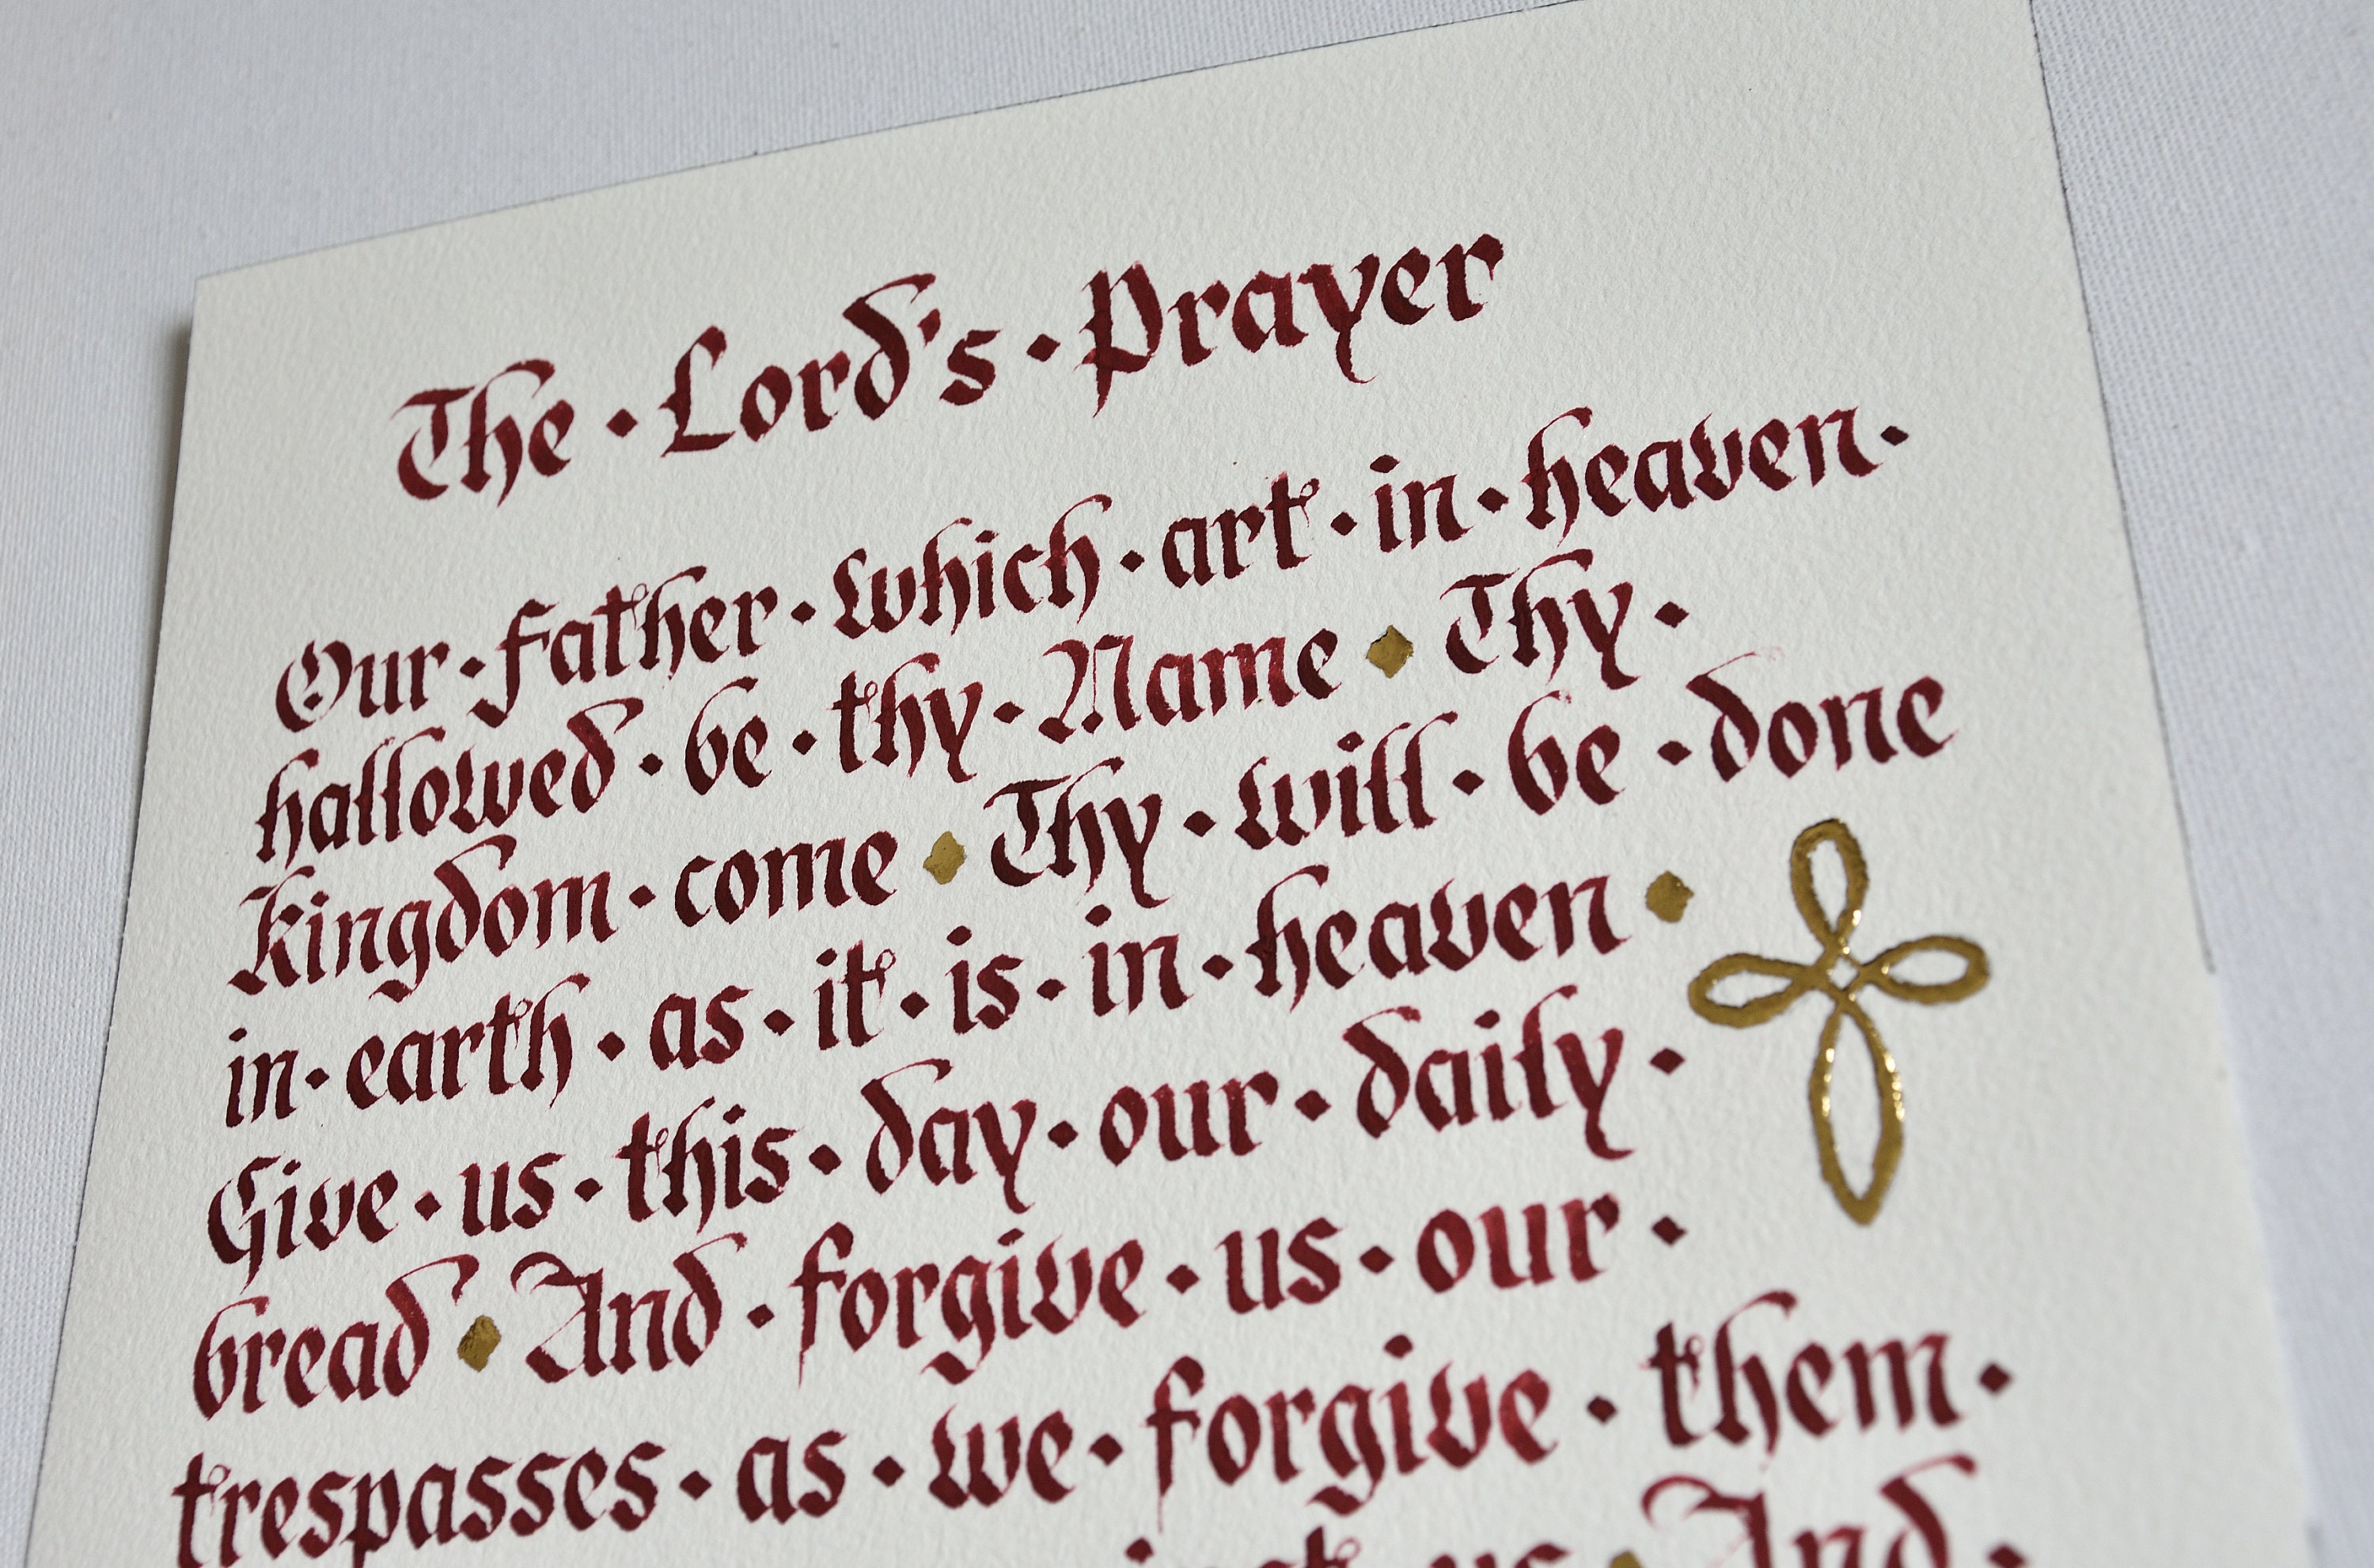 The · Lord's · Prayer
Our · Father · which · art · in · heaven ·
hallowed · be · thy · Name ◆ Thy ·
Kingdom · come ◆ Thy · will · be · done
in · earth · as · it · is · in · heaven ◆
Give · us · this · day · our · daily ·
bread ◆ And · forgive · us · our ·
trespasses · as · we · forgive · them ·
us ◆ And ·